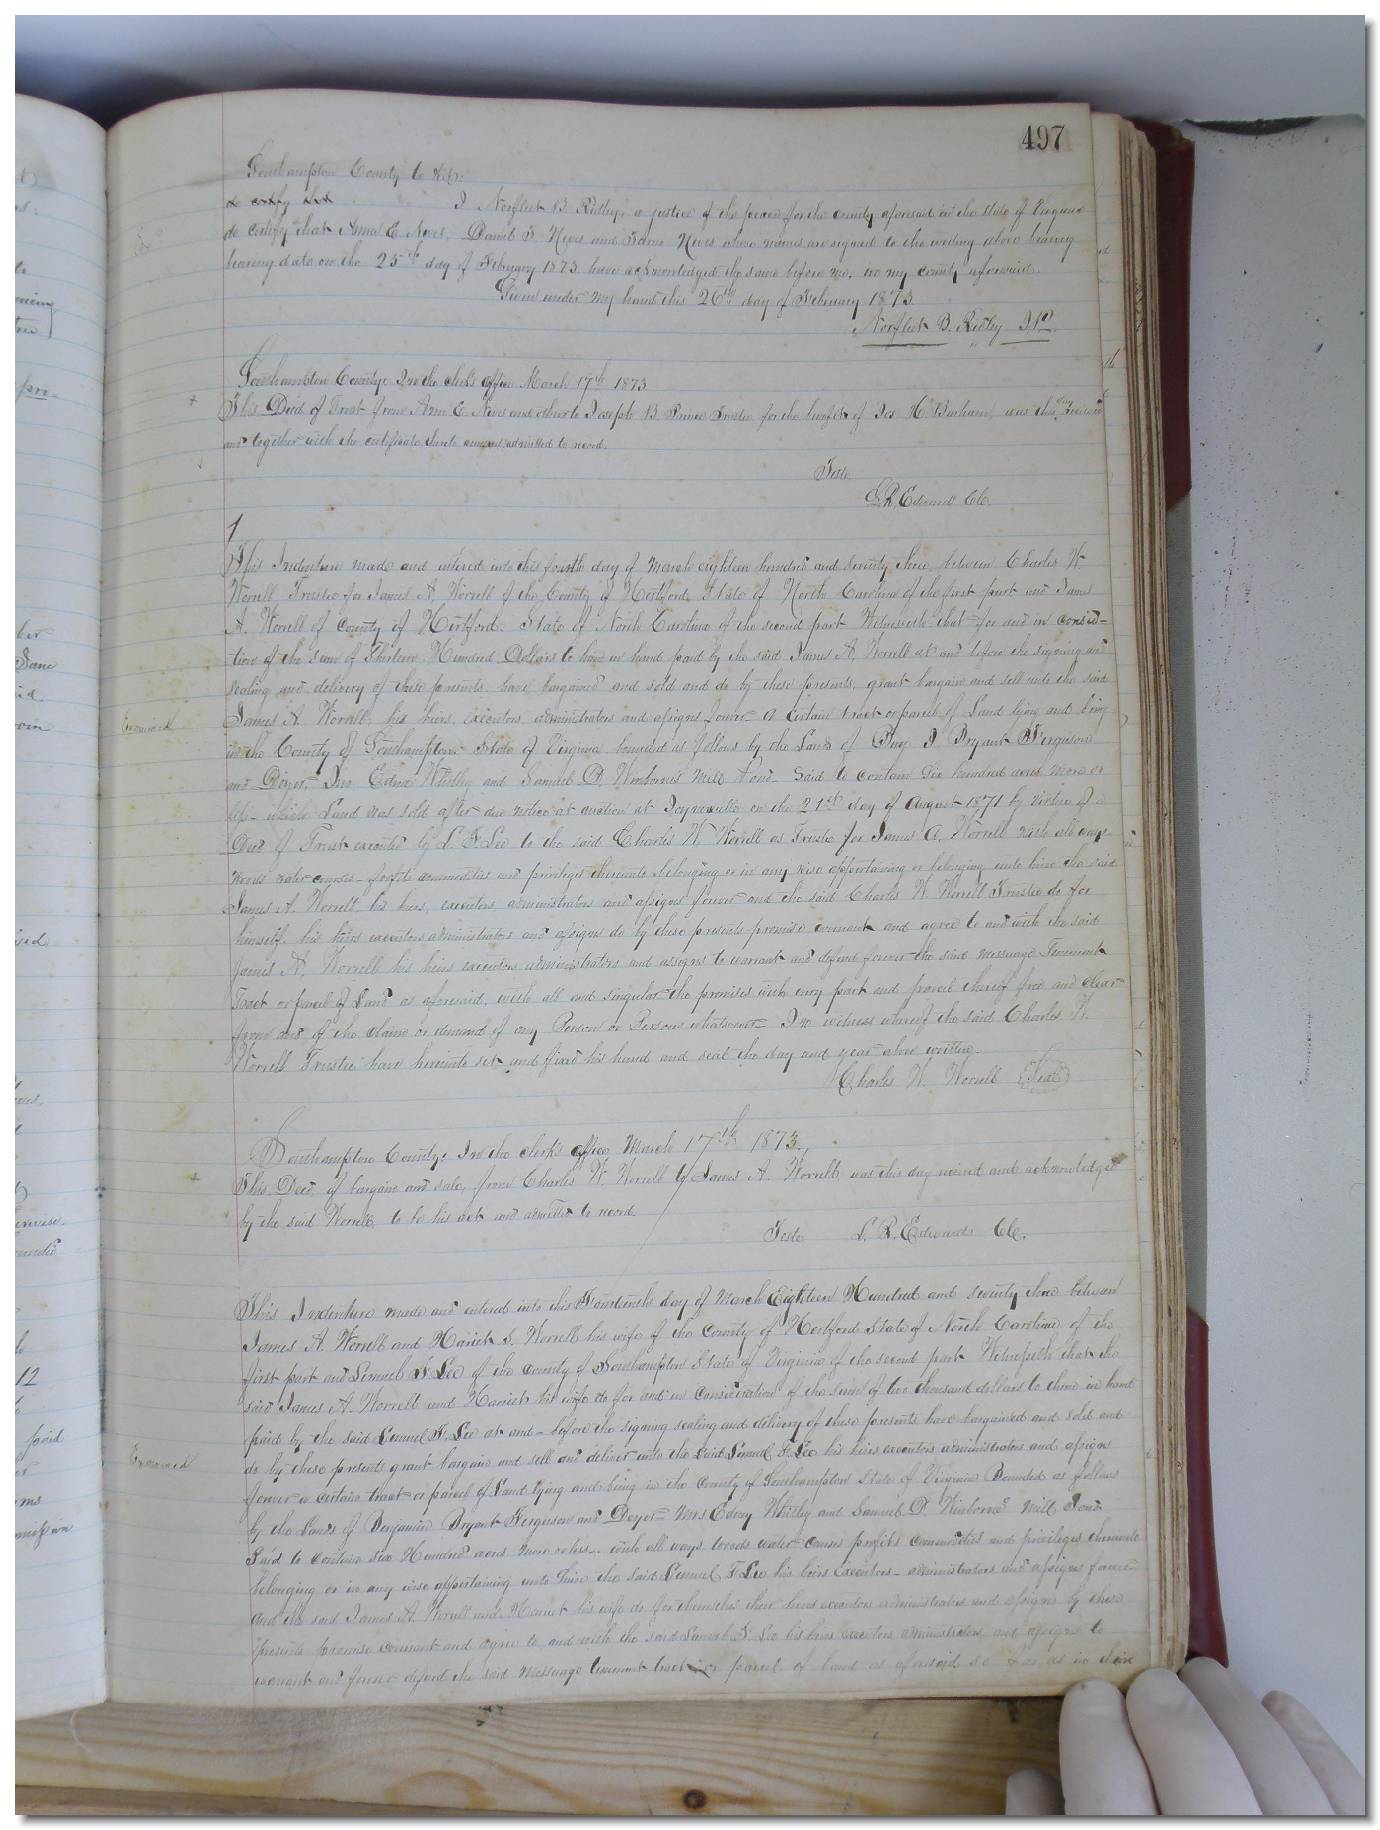 497
Southampton County to wit:
do certify that I Norfleet B Ridley, a justice of the peace for the county aforesaid in the State of Virginia
do certify that Anna E. Neves, Daniel T Neves and Neves whose names are signed to the writing above bearing
bearing date on the 25th day of February 1873 have acknowledged the same before me, in my county aforesaid.
Given under my hand this 26th day of February 1873
Norfleet B. Ridley J.P.
Southampton County: In the clerk's office March 17th 1873
This Deed of Trust from Ann E Neves and others to Joseph B Prince Trustee for the benefit of Jos H. Barham, was this day received
and together with the certificate thereto annexed, admitted to record.
Teste
L R. Edwards Clk.
This Indenture made and entered into this fourth day of March eighteen hundred and seventy three, between Charles W.
Worrell, Trustee for James A. Worrell of the County of Hertford, State of North Carolina of the first part and James
A. Worrell of County of Hertford, State of North Carolina of the second part Witnesseth that for and in considera-
tion of the sum of Thirteen Hundred Dollars to him in hand paid by the said James A. Worrell at and before the signing and
sealing and delivery of these presents, have bargained and sold and do by these presents, grant bargain and sell unto the said
Examined
James A. Worrell, his heirs, executors, administrators and assigns forever A certain tract or parcel of Land lying and being
in the County of Southampton State of Virginia bounded as follows by the Lands of Benj J. Bryant Ferguson
and Doyer, Mrs Edna Whitley and Samuel D. Winbornes Mill Pond. Said to contain Six hundred acres more or
less which Land was sold after due notice at auction at on the 21st day of August 1871 by virtue of a
Deed of Trust executed by L. F. Lee to the said Charles W. Worrell as Trustee for James A. Worrell with all ways
woods water courses profits commodities and privileges thereunto belonging or in any wise appertaining or belonging unto him the said
James A. Worrell, his heirs, executors, administrators and assigns forever and the said Charles W. Worrell Trustee do for
himself, his heirs executors administrators and assigns do by these presents promise covenant and agree to and with the said
James A. Worrell his heirs executors administrators and assigns to warrant and defend forever the said messuage Tenement
Tract or parcel of Land as aforesaid, with all and singular the premises with every part and parcel thereof free and clear
from and of the claim or demand of any Person or Persons whatsoever In witness whereof the said Charles W.
Worrell Trustee have hereunto set and fixed his hand and seal the day and year above written.
Charles W. Worrell Seal
Southampton County: In the clerk's office March 17th 1873.
This Deed, of bargain and sale, from Charles W. Worrell to James A. Worrell, was this day received and acknowledged
by the said Worrell, to be his act and admitted to record.
Teste L. R. Edwards Clk.
This Indenture made and entered into this Fourteenth day of March Eighteen Hundred and seventy three between
James A. Worrell and Hariet S. Worrell his wife of the County of Hertford State of North Carolina of the
first part and Lemuel F Lee of the county of Southampton State of Virginia of the second part Witnesseth that the
said James A. Worrell and Hariet his wife do for and in consideration of the sum of two thousand dollars to them in hand
paid by the said Lemuel F. Lee at and before the signing sealing and delivery of these presents have bargained and sold and
Examined
do by these presents grant bargain and sell and deliver unto the said Lemuel F. Lee his heirs executors administrators and assigns
forever a certain tract or parcel of Land lying and being in the County of Southampton State of Virginia Bounded as follows
by the Lands of Benjamin Bryant Ferguson and Doyer Mrs Edney Whitley and Samuel D. Winbornes Mill Pond
Said to contain six Hundred acres more or less with all ways woods water courses profits commodities and privileges thereunto
belonging or in any wise appertaining unto him the said Lemuel F Lee his heirs Executors administrators and assigns forever
And the said James A. Worrell and Hariet his wife do for themselves their heirs executors administrators and assigns by these
presents promise covenant and agree to and with the said Lemuel F. Lee his heirs executors administrators and assigns to
warrant and forever defend the said messuage tenement tract or parcel of land as aforesaid so far as in